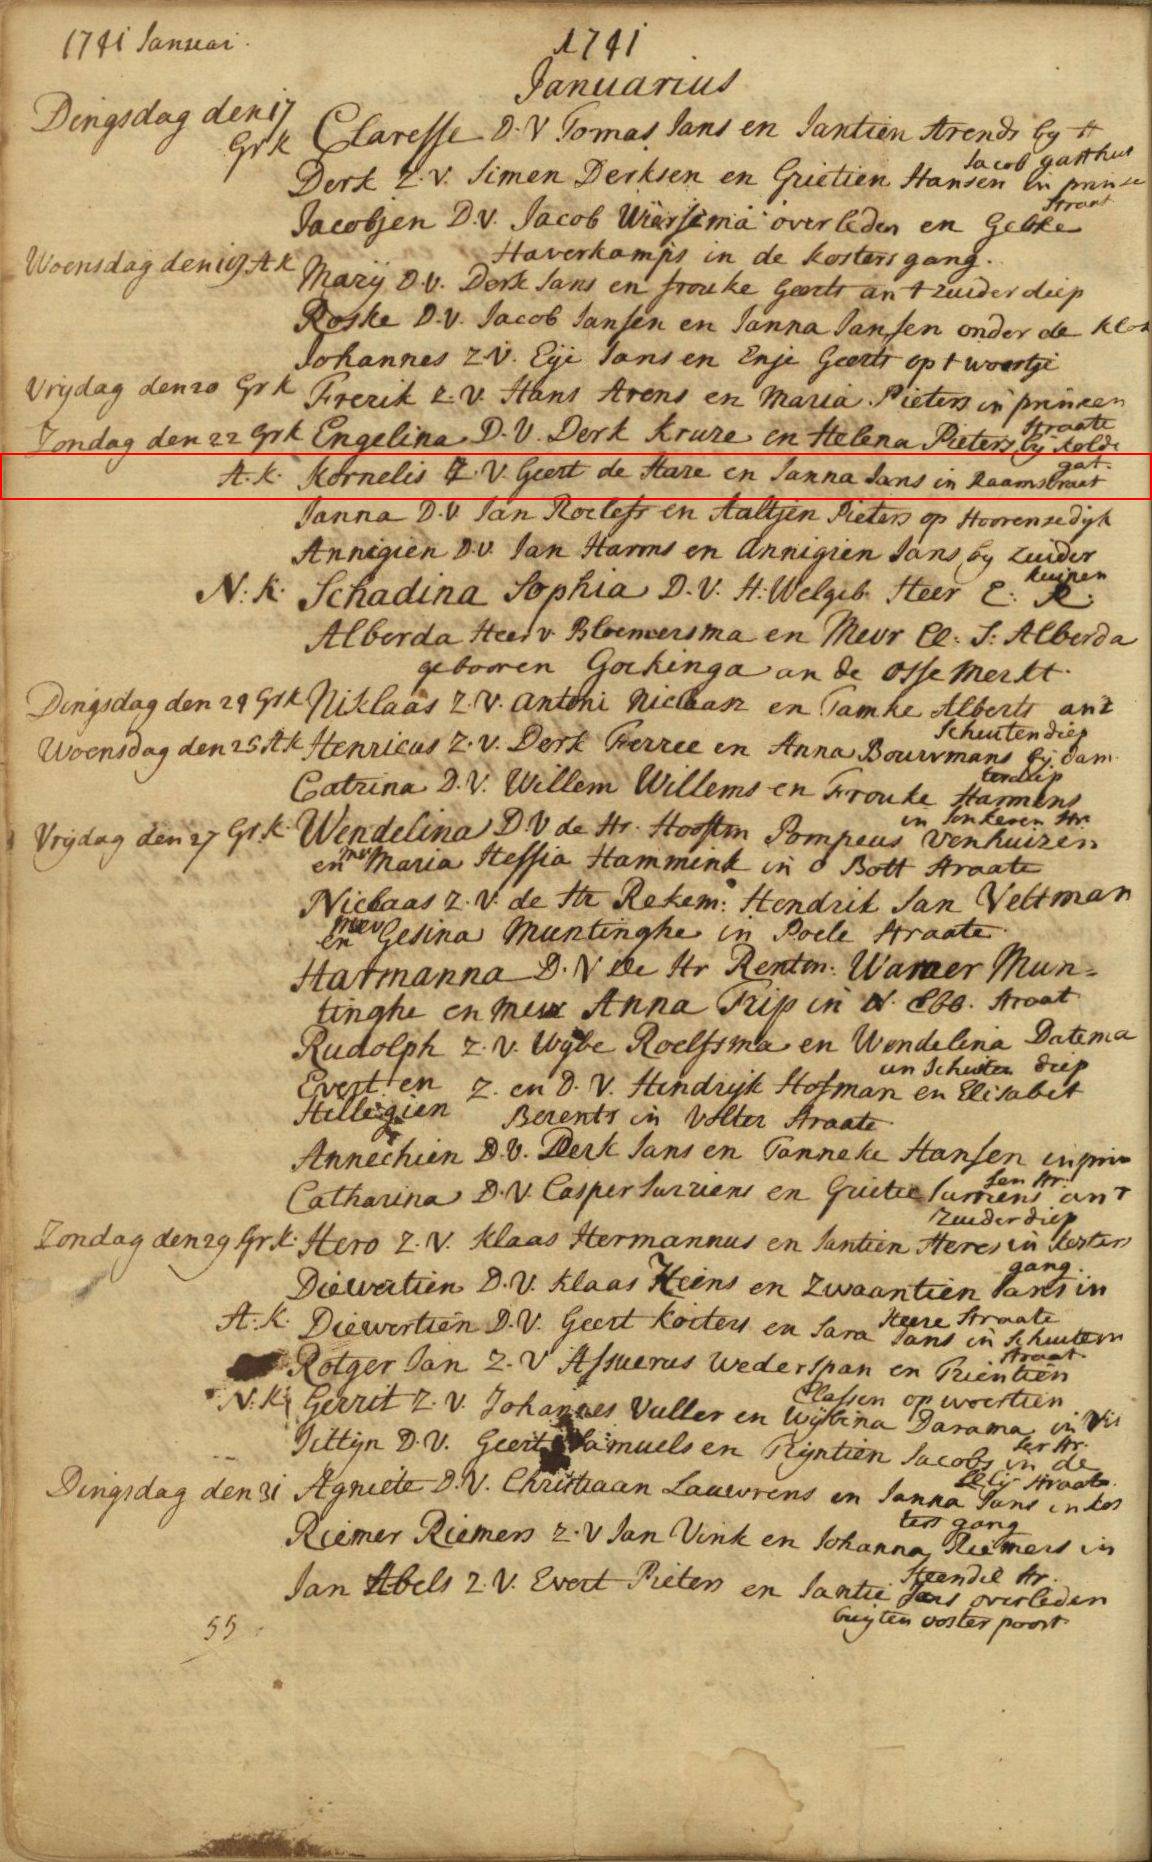 1741 Januari.
1741
Januarius
Dingsdag den 17
Grk Claresse D.V Tomas Jans en Jantien Arends by t
Jacob gasthus
Derk Z.V. Simen Derksen en Grietien Hansen in prinse
straat
Jacobjen D.V. Jacob Wiersema overleden en Gebke
Haverkamps in de kosters gang.
Woensdag den A k Marij D.V. Derk Jans en frouke Geerts an t zuider diep
Roske D.V. Jacob Jansen en Janna Jansen onder de klok
Johannes Z.V. Eije Jans en Enje Geerts op t woertje
Vrydag den 20 Gr k Frerik Z.V. Hans Arens en Maria Pieters in prinsen
straate
Zondag den 22 Grk Engelina D.V. Derk Kruze en Helena Pieters by kolde
gat.
A.k. Kornelis Z.V. Geert de Haze en Janna Jans in Raamstraat
Janna D.V Jan Roelefs en Aaltjen Pieters op Hoorensedyk
Annigien D.V. Jan Harms en Annigien Jans by zuider
kuipen
N.k. Schadina Sophia D.V. H. Welgeb. Heer E. R.
Alberda Heer v. Bloemersma en Mevr J. Alberda
gebooren Gockinga an de Osse Merkt.
Dingsdag den 24 Grk Niklaas Z.V. Antoni Niclaasz en Tamke Alberts an t
Schuitendiep
Woensdag den 25 Ak Henricus Z.V. Derk Ferree en Anna Bouwmans bij dam
sterdiep
Catrina D.V. Willem Willems en Frouke Harmens
in Jonkeren str.
Vrijdag den 27 Gr.k. Wendelina D.V de Hr. Hooftm Pompeus Venhuizen
en mev Maria Hessia Hammink in o Bott straate
Niclaas Z.V. de Hr Rekem: Hendrik Jan Veltman
en mev Gesina Muntinghe in Poele straate.
Harmanna D.V de Hr Rentm. Warner Mun=
tinghe en mevr Anna Trip in N. Ebb. straat
Rudolph Z.V. Wybe Roelfsma en Wendelina Datema
an Schuiten diep
Evert en Z. en D.V. Hendrijk Hofman en Elisabet
Hillegien Berents in Volter straate.
Annechien D.V. Derk Jans en Tanneke Hansen in prin
sen str.
Catharina D.V. Casper Jurriens en Grietie Jurriens an t
Zuiderdiep
Zondag den 29 Gr.k. Hero Z.V. Klaas Hermannus en Jantien Heres in kosters
gang.
Diewertien D.V. Klaas Heins en Zwaantien Jans in
Heere straate
A.k. Diewertien D.V. Geert Kosters en Sara Jans in Schuiten
straat.
Rotger Jan Z.V Assuerus Wederspan en Trientien
Classen op woertien
N.k. Gerrit Z.V. Johannes Vuller en Wijbina Darama in Vis
ser str.
Jittijn D.V. Geert Samuels en Trijntien Jacobs in de
Lelij straate
Dingsdag den 31 Agniete D.V. Christiaan Lauwrens en Janna Jans in kos
ters gang
Riemer Riemers Z.V Jan Vink en Johanna Riemers in
Steendil str.
Jan Abels Z.V. Evert Pieters en Jantie Jans overleden
buyten ooster poort
55